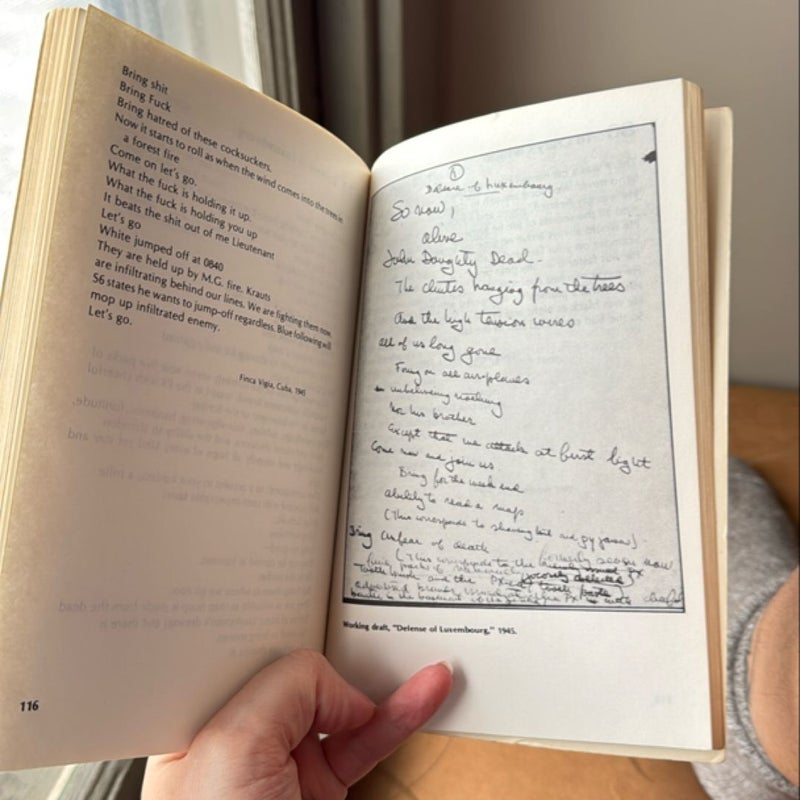 Bring shit
Bring Fuck
Bring hatred of these cocksuckers.
Now it starts to roll as when the wind comes into the trees in
a forest fire
Come on let's go.
What the fuck is holding it up.
What the fuck is holding you up
It beats the shit out of me Lieutenant
Let's go
White jumped off at 0840
They are held up by M.G. fire. Krauts
are infiltrating behind our lines. We are fighting them now.
S6 states he wants to jump-off regardless. Blue following will
mop up infiltrated enemy.
Let's go.
Finca Vigia, Cuba, 1945
116
1
Defense of Luxembourg
So now,
alive
John Doughty Dead.
The chutes hanging from the trees
And the high tension wires
all of us long gone
From all air-planes
unbelieving nothing
his brother
Except that we attack at first light
Come now and join us
Bring for the week end
ability to read a map
(This corresponds to shaving kit and pyjamas).
Bring unfear of death
(This corresponds to the
tooth brush and the
Working draft, "Defense of Luxembourg," 1945.